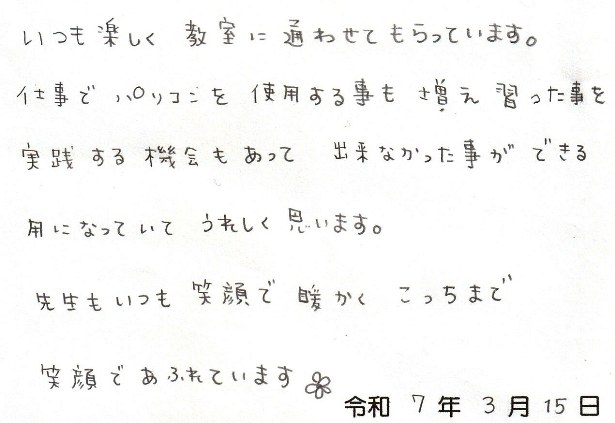 いつも楽しく 教室に 通わせてもらっています。
仕事で パソコンを 使用する事も 増え 習った事を
実践する機会もあって 出来なかった事が できる
用になっていて うれしく 思います。
先生もいつも 笑顔で 暖かく こっちまで
笑顔であふれています
令和 7 年 3 月 15 日